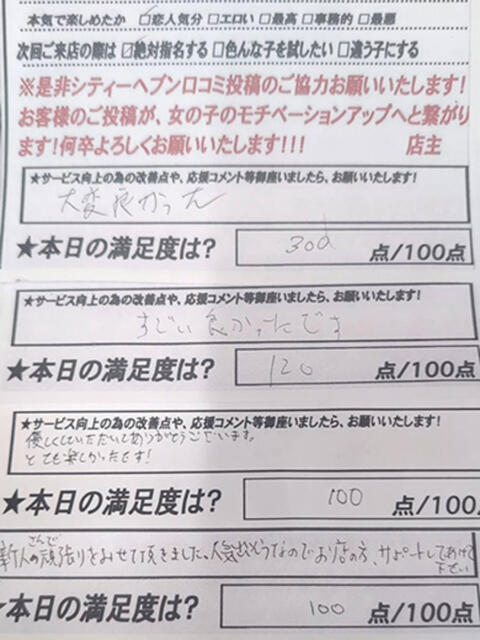 本気で楽しめたか ☑恋人気分 □エロい □最高 □事務的 □最悪
次回ご来店の際は ☑絶対指名する □色んな子を試したい □違う子にする
※是非シティーヘブン口コミ投稿のご協力お願いいたします!
お客様のご投稿が、女の子のモチベーションアップへと繋がり
ます!何卒よろしくお願いいたします!!! 店主
★サービス向上の為の改善点や、応援コメント等御座いましたら、お願いいたします!
大変良かった
★本日の満足度は? 300 点/100点
★サービス向上の為の改善点や、応援コメント等御座いましたら、お願いいたします!
すごい良かったです
★本日の満足度は? 120 点/100点
★サービス向上の為の改善点や、応援コメント等御座いましたら、お願いいたします!
優しくしていただいてありがとうございます。
とても楽しかったです!
★本日の満足度は? 100 点/100
新人さんで頑張りをみせて頂きました、人気出そうなのでお店の方、サポートしてあげて
下さい
★本日の満足度は? 100 点/100点